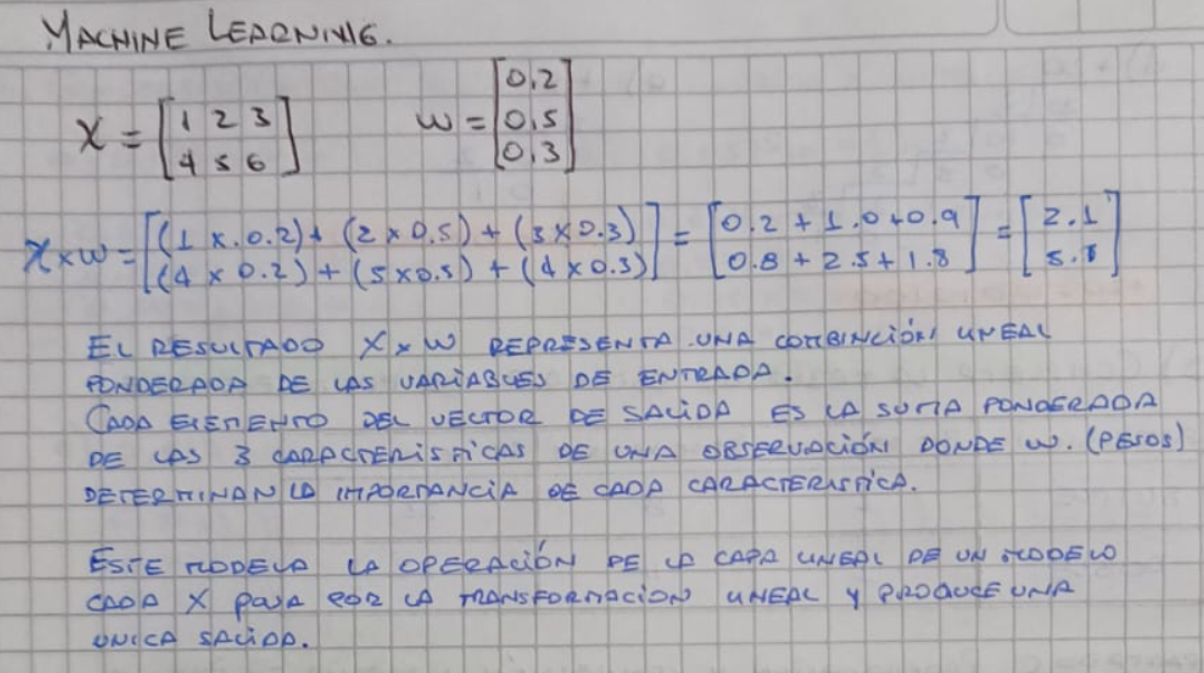 MACHINE LEARNING.
X = [1 2 3; 4 5 6]    w = [0,2; 0,5; 0,3]
X x w = [(1 x.0.2) + (2 x 0.5) + (3 x 0.3); (4 x 0.2) + (5 x 0.5) + (4 x 0.3)] = [0.2 + 1.0 + 0.9; 0.8 + 2.5 + 1.8] = [2.1; 5.1]
EL RESULTADO X x W REPRESENTA UNA COMBINCIÓN LINEAL
PONDERADA DE LAS VARIABLES DE ENTRADA.
CADA ELEMENTO DEL VECTOR DE SALIDA ES LA SUMA PONDERADA
DE LAS 3 CARACTERISTICAS DE UNA OBSERVACIÓN DONDE W. (PESOS)
DETERMINAN LA IMPORTANCIA DE CADA CARACTERISTICA.
ESTE MODELA LA OPERACIÓN DE LA CAPA LINEAL DE UN MODELO
CADA X PASA POR LA TRANSFORMACION LINEAL Y PRODUCE UNA
UNICA SALIDA.